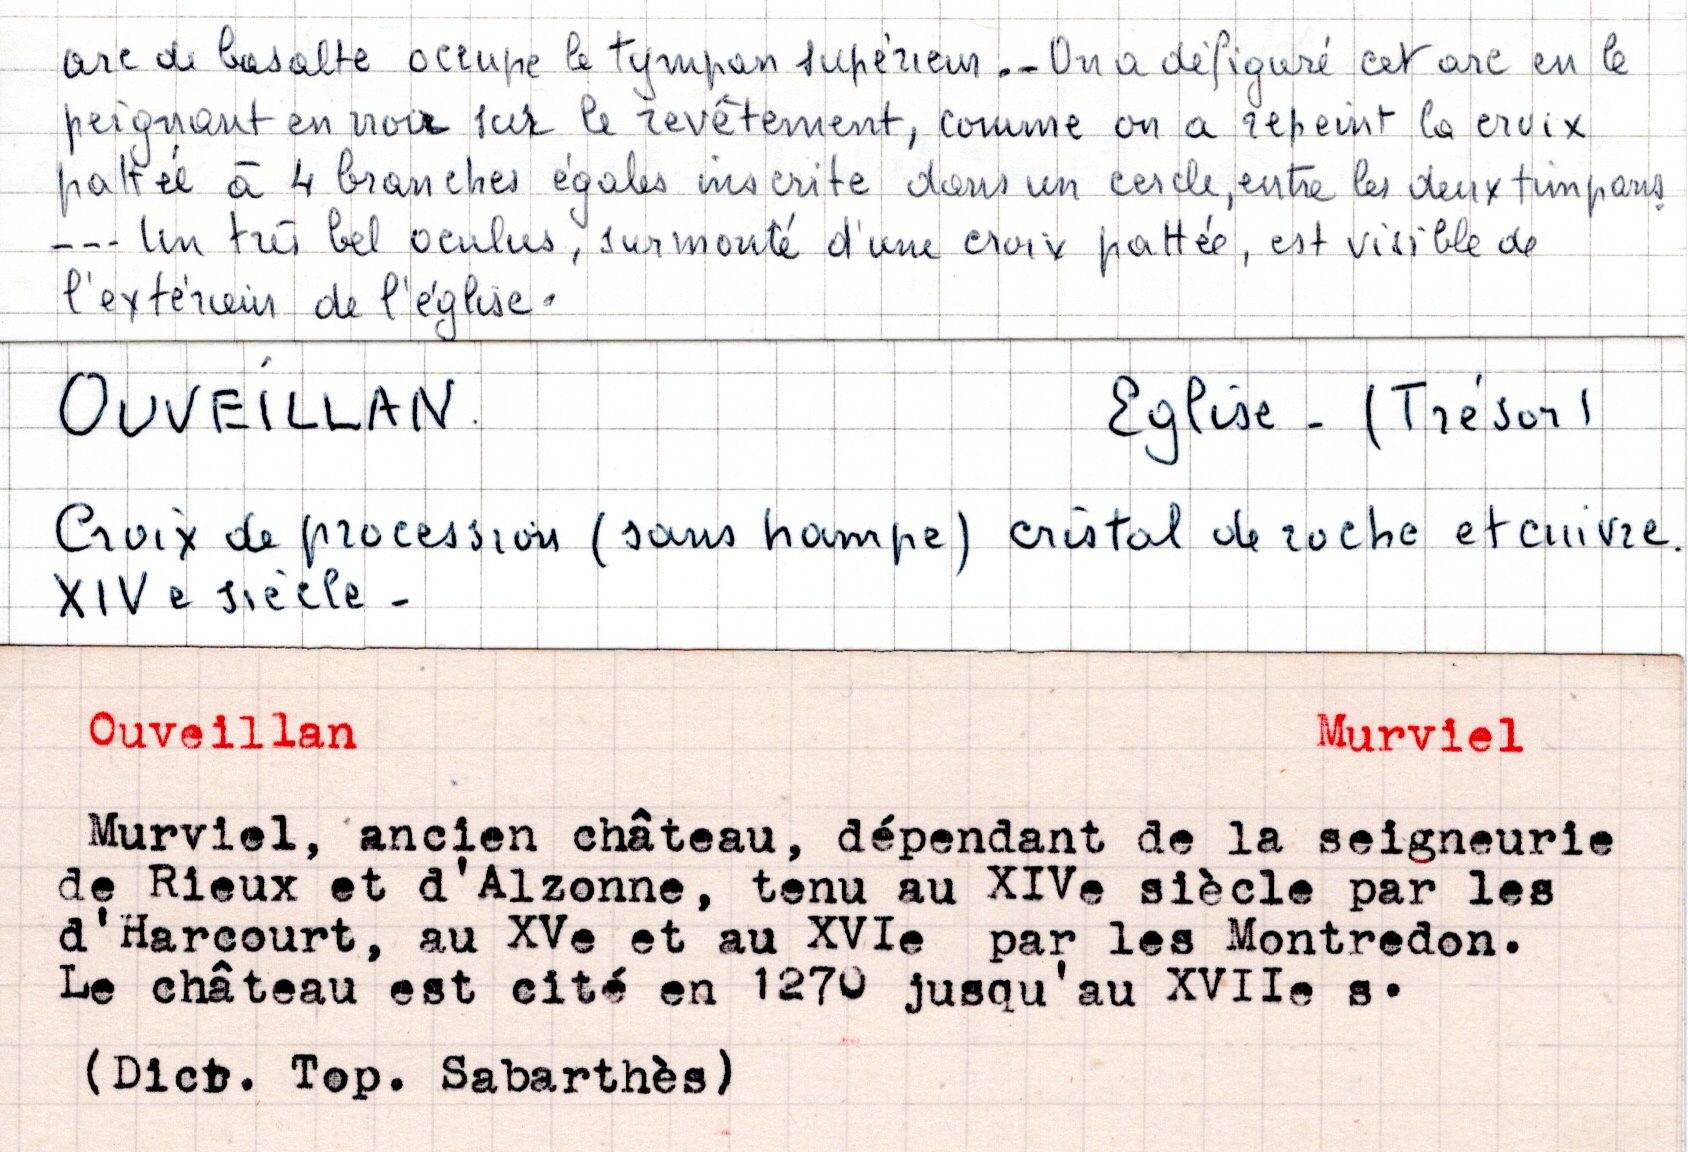 arc de basalte occupe le tympan supérieur.- On a défiguré cet arc en le
peignant en noir sur le revêtement, comme on a repeint la croix
pattée à 4 branches égales inscrite dans un cercle, entre les deux timpans.
--- Un très bel oculus, surmonté d'une croix pattée, est visible de
l'extérieur de l'église.
OUVEÍLLAN. Eglise - (Trésor)
Croix de procession (sans hampe) cristal de roche et cuivre.
XIVe siècle -
Ouveillan Murviel
Murviel, ancien château, dépendant de la seigneurie
de Rieux et d'Alzonne, tenu au XIVe siècle par les
d'Harcourt, au XVe et au XVIe par les Montredon.
Le château est cité en 1270 jusqu'au XVIIe s.
(Dict. Top. Sabarthès)